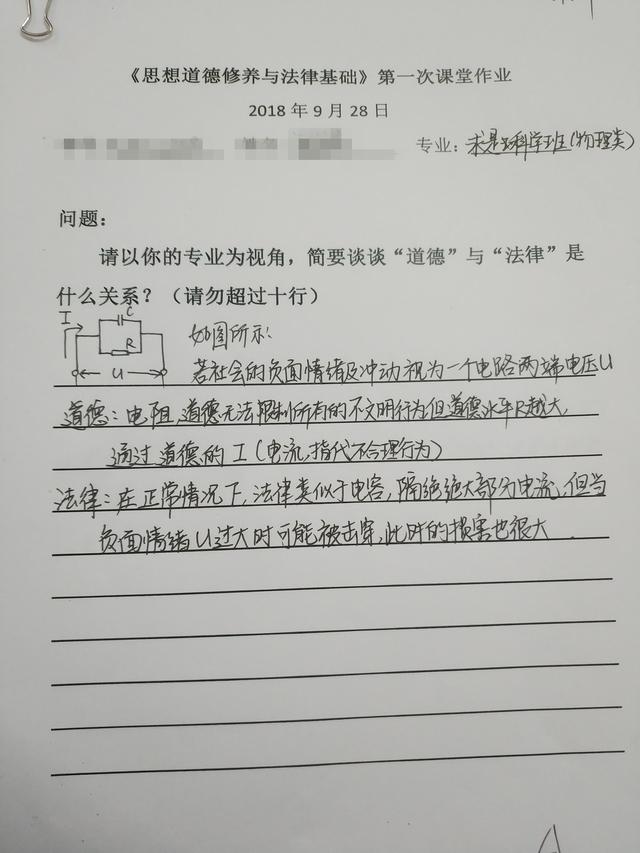 《思想道德修养与法律基础》第一次课堂作业
2018 年 9 月 28 日
专业：求是科学班(物理类)
问题：
请以你的专业为视角，简要谈谈“道德”与“法律”是
什么关系？（请勿超过十行）
I C R U
如图所示:
若社会的负面情绪及冲动视为一个电路两端电压U
道德：电阻,道德无法限制所有的不文明行为但道德水平R越大,
通过道德的 I (电流,指代不合理行为)
法律：在正常情况下,法律类似于电容,隔绝绝大部分电流,但当
负面情绪U过大时可能被击穿,此时的损害也很大.